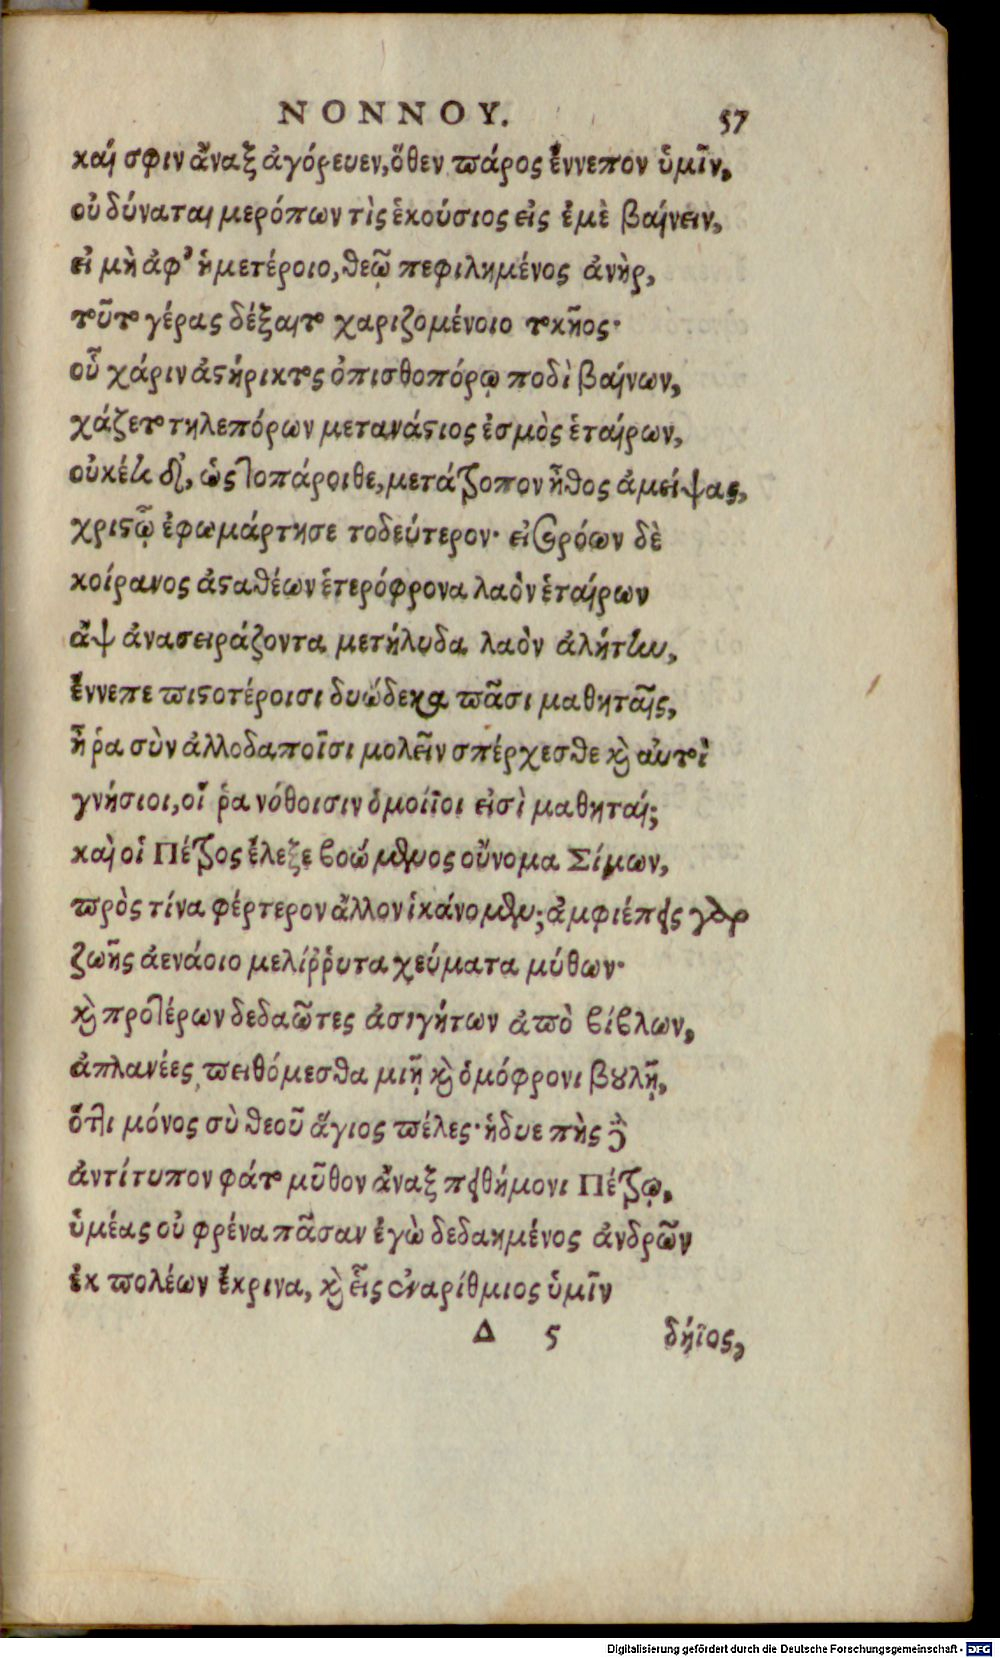 ΝΟΝΝΟΥ. 57
καί σφιν ἄναξ ἀγόρευεν, ὅθεν πάρος ἔννεπον ὑμῖν,
οὐ δύναται μερόπων τὶς ἑκούσιος εἰς ἐμὲ βαίνειν,
εἰ μὴ ἀφ' ἡμετέροιο, θεῷ πεφιλημένος ἀνὴρ,
τοῦτο γέρας δέξαιτο χαριζομένοιο τοκῆος·
οὗ χάριν ἀστήρικτος ὀπισθοπόρῳ ποδὶ βαίνων,
χάζετο τηλεπόρων μετανάστιος ἑσμὸς ἑταίρων,
οὐκέτι δ', ὡς τοπάροιθε, μετάτροπον ἦθος ἀμείψας,
χριστῷ ἐφωμάρτησε τοδεύτερον· εἰσορόων δὲ
κοίρανος ἀσταθέων ἑτερόφρονα λαὸν ἑταίρων
ἂψ ἀνασειράζοντα μετήλυδα λαὸν ἀλήτην,
ἔννεπε πιστοτέροισι δυώδεκα πᾶσι μαθηταῖς,
ἦ ῥα σὺν ἀλλοδαποῖσι μολεῖν σπέρχεσθε καὶ αὐτοὶ
γνήσιοι, οἵ ῥα νόθοισιν ὁμοίϊοι εἰσὶ μαθηταί;
καὶ οἱ Πέτρος ἔλεξε βοώμενος οὔνομα Σίμων,
πρὸς τίνα φέρτερον ἄλλον ἱκάνομεν; ἀμφιέπεις γὰρ
ζωῆς ἀενάοιο μελίῤῥυτα χεύματα μύθων·
καὶ προτέρων δεδαῶτες ἀσιγήτων ἀπὸ βίβλων,
ἀπλανέες πειθόμεσθα μιῇ καὶ ὁμόφρονι βουλῇ,
ὅττι μόνος σὺ θεοῦ ἅγιος πέλες· ἡδυεπὴς δὲ
ἀντίτυπον φάτο μῦθον ἄναξ πειθήμονι Πέτρῳ,
ὑμέας οὐ φρένα πᾶσαν ἐγὼ δεδαημένος ἀνδρῶν
ἐκ πολέων ἔκρινα, καὶ εἷς ἐναρίθμιος ὑμῖν
Δ 5 δήϊος,
Digitalisierung gefördert durch die Deutsche Forschungsgemeinschaft - DFG